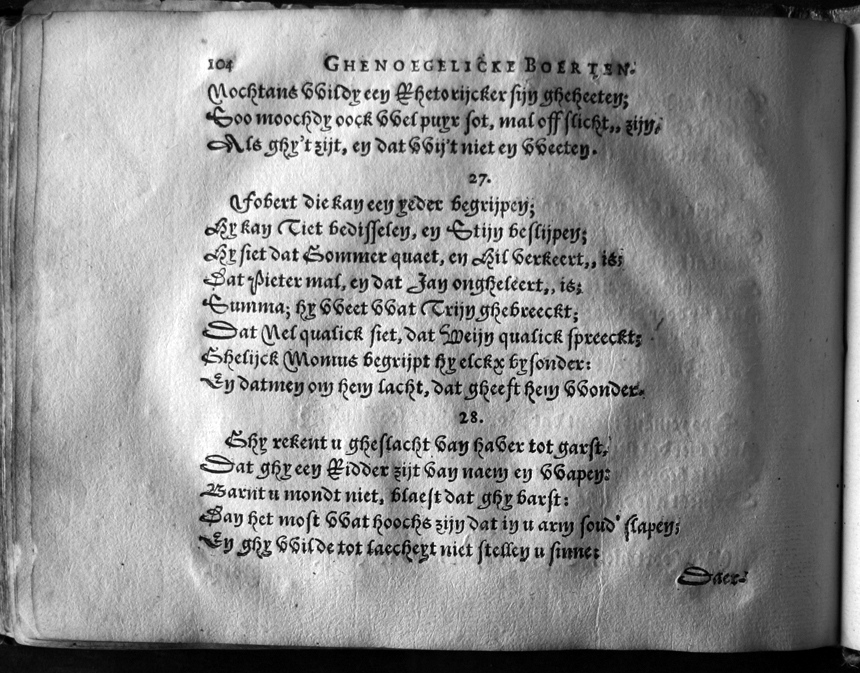 104 GHENOEGELICKE BOERTEN.
Nochtans VVildy een Rhetorijcker sijn gheheeten;
Soo moochdy oock VVel puyr sot, mal off slicht,, zijn,
Als ghy't zijt, en dat VVij't niet en VVeeten.
27.
Jobert die kan een yeder begrijpen;
Hy kan Tiet bedisselen, en Stijn beslijpen;
Hy siet dat Gommer quaet, en Hil verkeert,, is;
Dat Pieter mal, en dat Jan ongheleert,, is;
Summa; hy VVeet VVat Trijn ghebreeckt;
Dat Nel qualick siet, dat Weijn qualick spreeckt;
Ghelijck Momus begrijpt hy elckx bysonder:
En datmen om hem lacht, dat gheeft hem VVonder.
28.
Ghy rekent u gheslacht van haver tot garst,
Dat ghy een Ridder zijt van naem en VVapen:
Barnt u mondt niet, blaest dat ghy barst:
Dan het most VVat hoochs zijn dat in u arm soud' slapen;
En ghy VVilde tot laecheyt niet stellen u sinne:
Daer-